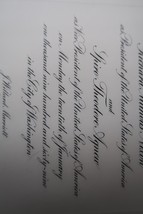 as President of the United States of America
and
Spiro Theodore Agnew
as Vice President of the United States of America
on Monday the twentieth of January
one thousand nine hundred and sixty-nine
in the City of Washington
J. Willard Marriott